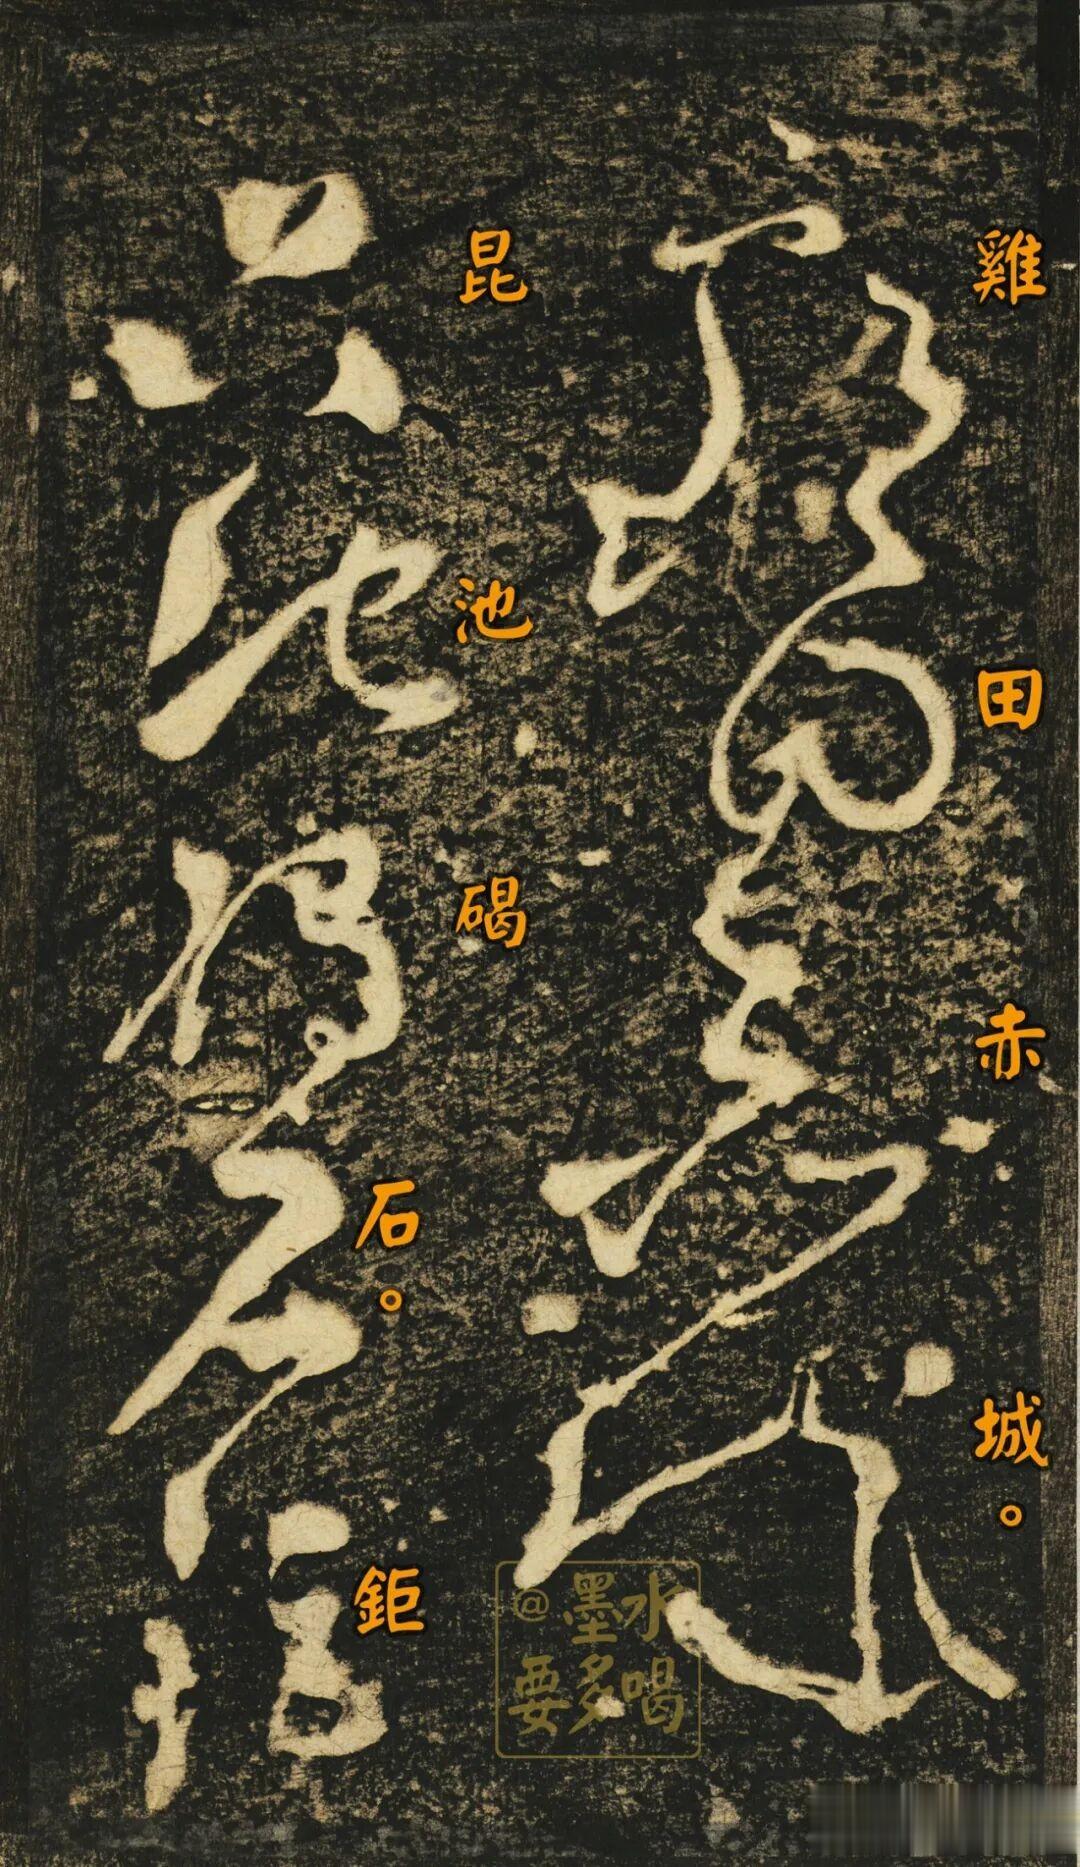 雞田赤城。
昆池碣石。鉅
@墨水
要多喝